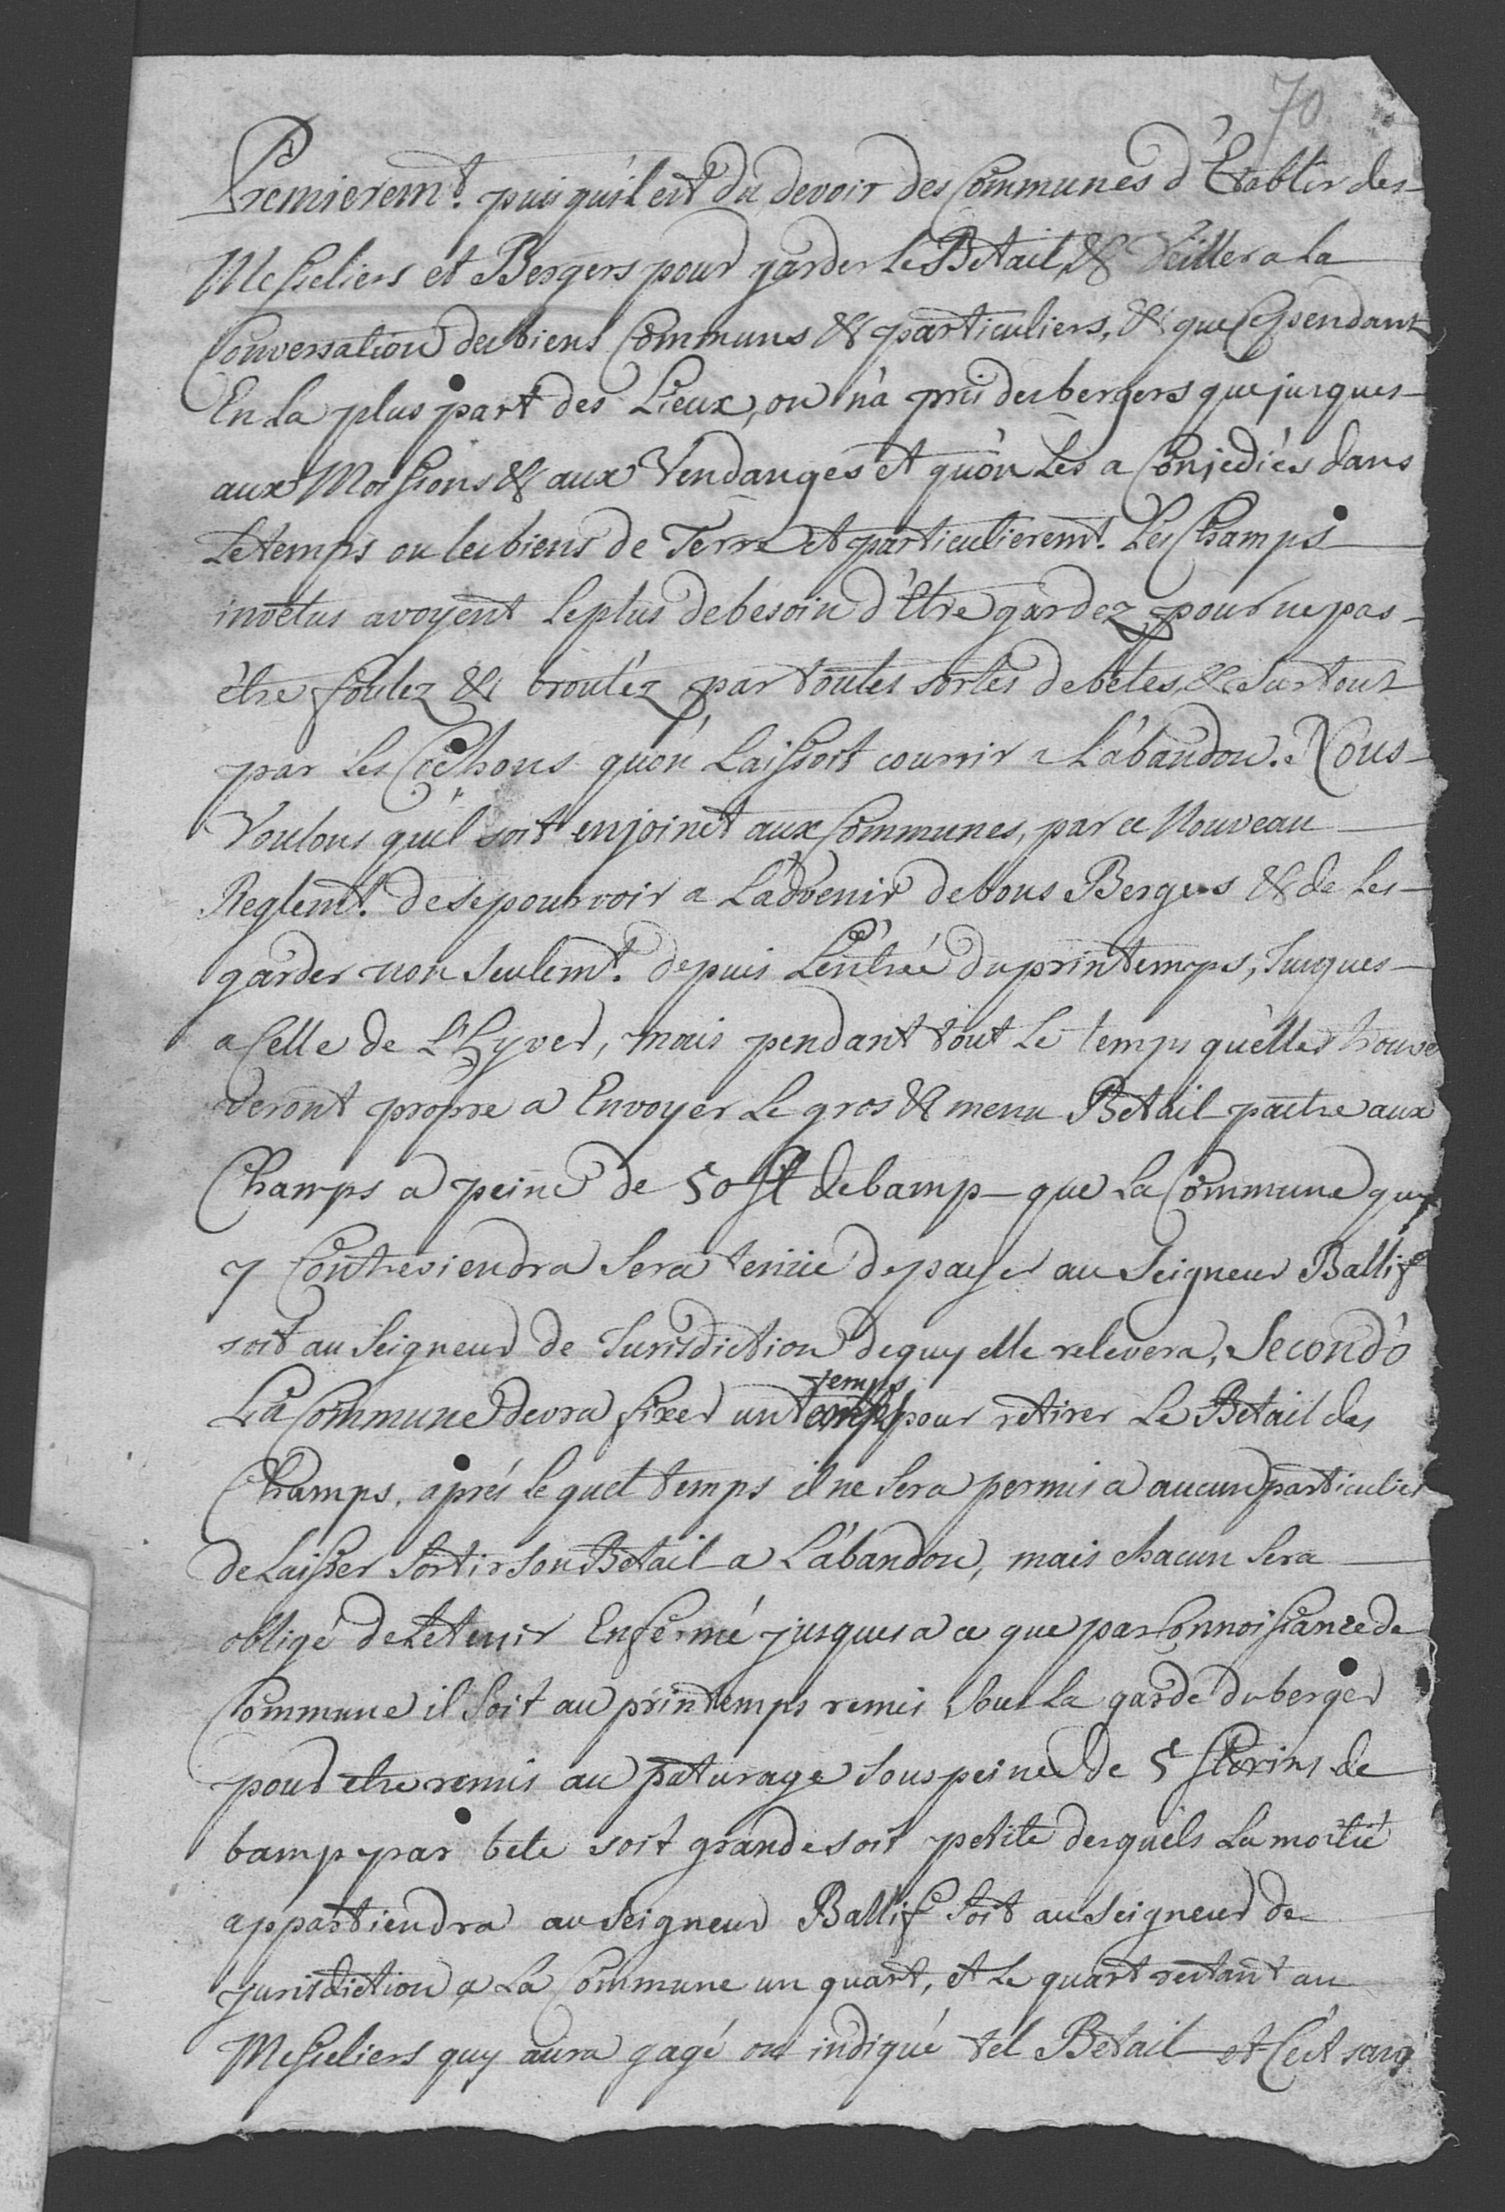 70
Premierem.t puis qu'il est du devoir des Communes d'Etablir des
Messeliers et Bergers pour garder Le Betail, & Veiller a La
Conversation des biens Communs & particuliers, & que Cependant
En La plus part des Lieux, on n'a pris des bergers que jusques
aux Moissons & aux Vendanges et qu'on Les a Conjediés dans
Le temps ou les biens de Terre et particulierem.t Les Champs
invêtus avoyent le plus de besoin d'Etre gardez, pour ne pas
être foulez & broutéz par toutes sortes de bêtes, & Surtout
par Les Cochons qu'on Laissoit courrir a L'abandon. Nous
Voulons qu'il soit enjoinct aux Communes, par ce Nouveau
Reglem.t de se pourvoir a L'advenir de bons Bergers & de Les
garder non Seulem.t depuis L'entrée du printemps, Jusques
a Celle de L'Hyver, mais pendant tout Le temps qu'elles trouve
veront propre a Envoyer Le gros & menu Betail paitre aux
Champs a peine de 50 fl de bamp que La Commune quy
y Contreviendra Sera tenüe de payer au Seigneur Ballif
soit au Seigneur de Jurisdiction de quy elle relevera, Secondo
La Commune devra fixer un temps pour retirer Le Betail des
Champs, aprés le quel temps il ne Sera permis a aucun particulier
de Laisser Sortir Son Betail a L'abandon, mais chacun Sera
obligé de Le tenir Enfermé jusques a ce que par Connoissance de
Commune il Soit au printemps remis Sous La garde du berger
pour etre remis au paturage Sous peine de 5 florins de
bamp par bête soit grande soit petite desquels La moitié
appartiendra au Seigneur Ballif Soit au Seigneur de
jurisdiction a La Commune un quart, et Le quart restant au
Messeliers quy aura gagé ou indiqué tel Betail et C'est sans